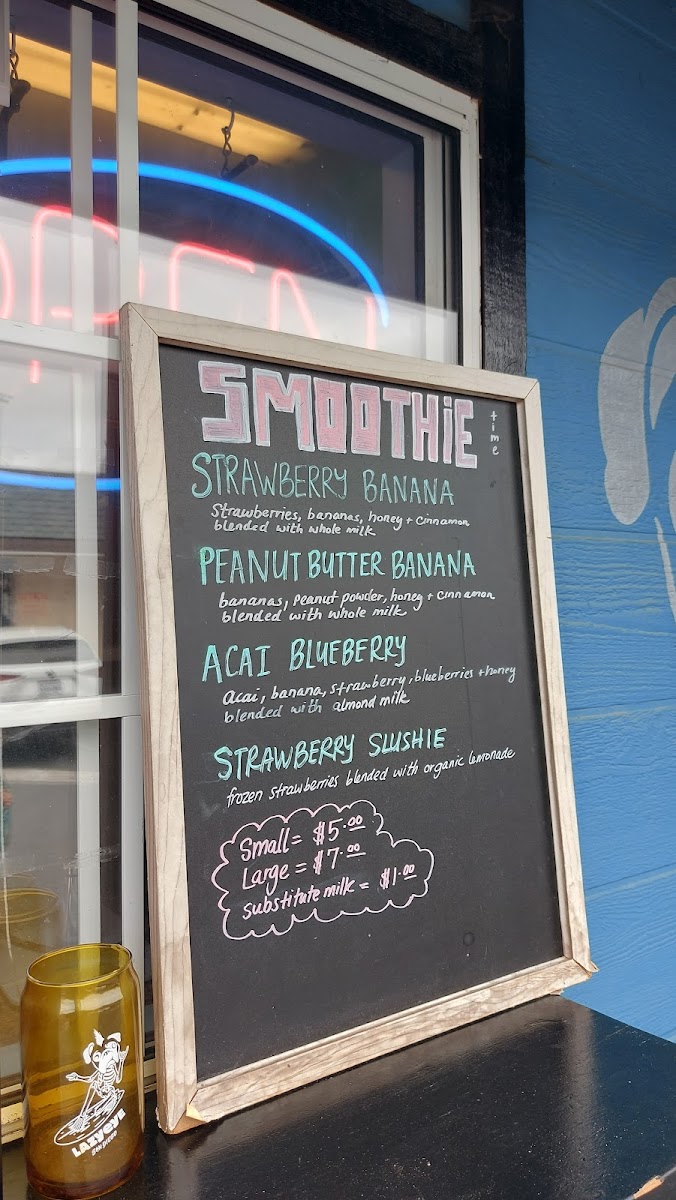 OPEN
SMOOTHiE time
STRAWBERRY BANANA
Strawberries, bananas, honey + cinnamon
blended with whole milk
PEANUT BUTTER BANANA
bananas, peanut powder, honey + cinnamon
blended with whole milk
ACAI BLUEBERRY
Acai, banana, strawberry, blueberries + honey
blended with almond milk
STRAWBERRY SLUSHIE
frozen strawberries blended with organic lemonade
Small = $5.00
Large = $7.00
substitute milk = $1.00
LAZYEYE